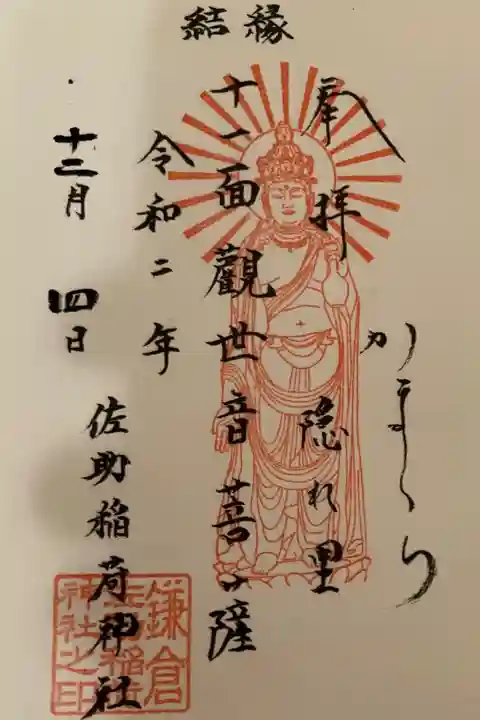 結縁
かまくら
奉拝 隠れ里
十一面觀世音菩薩
令和二年
十二月四日
佐助稲荷神社
鎌倉
佐助稲荷
神社之印